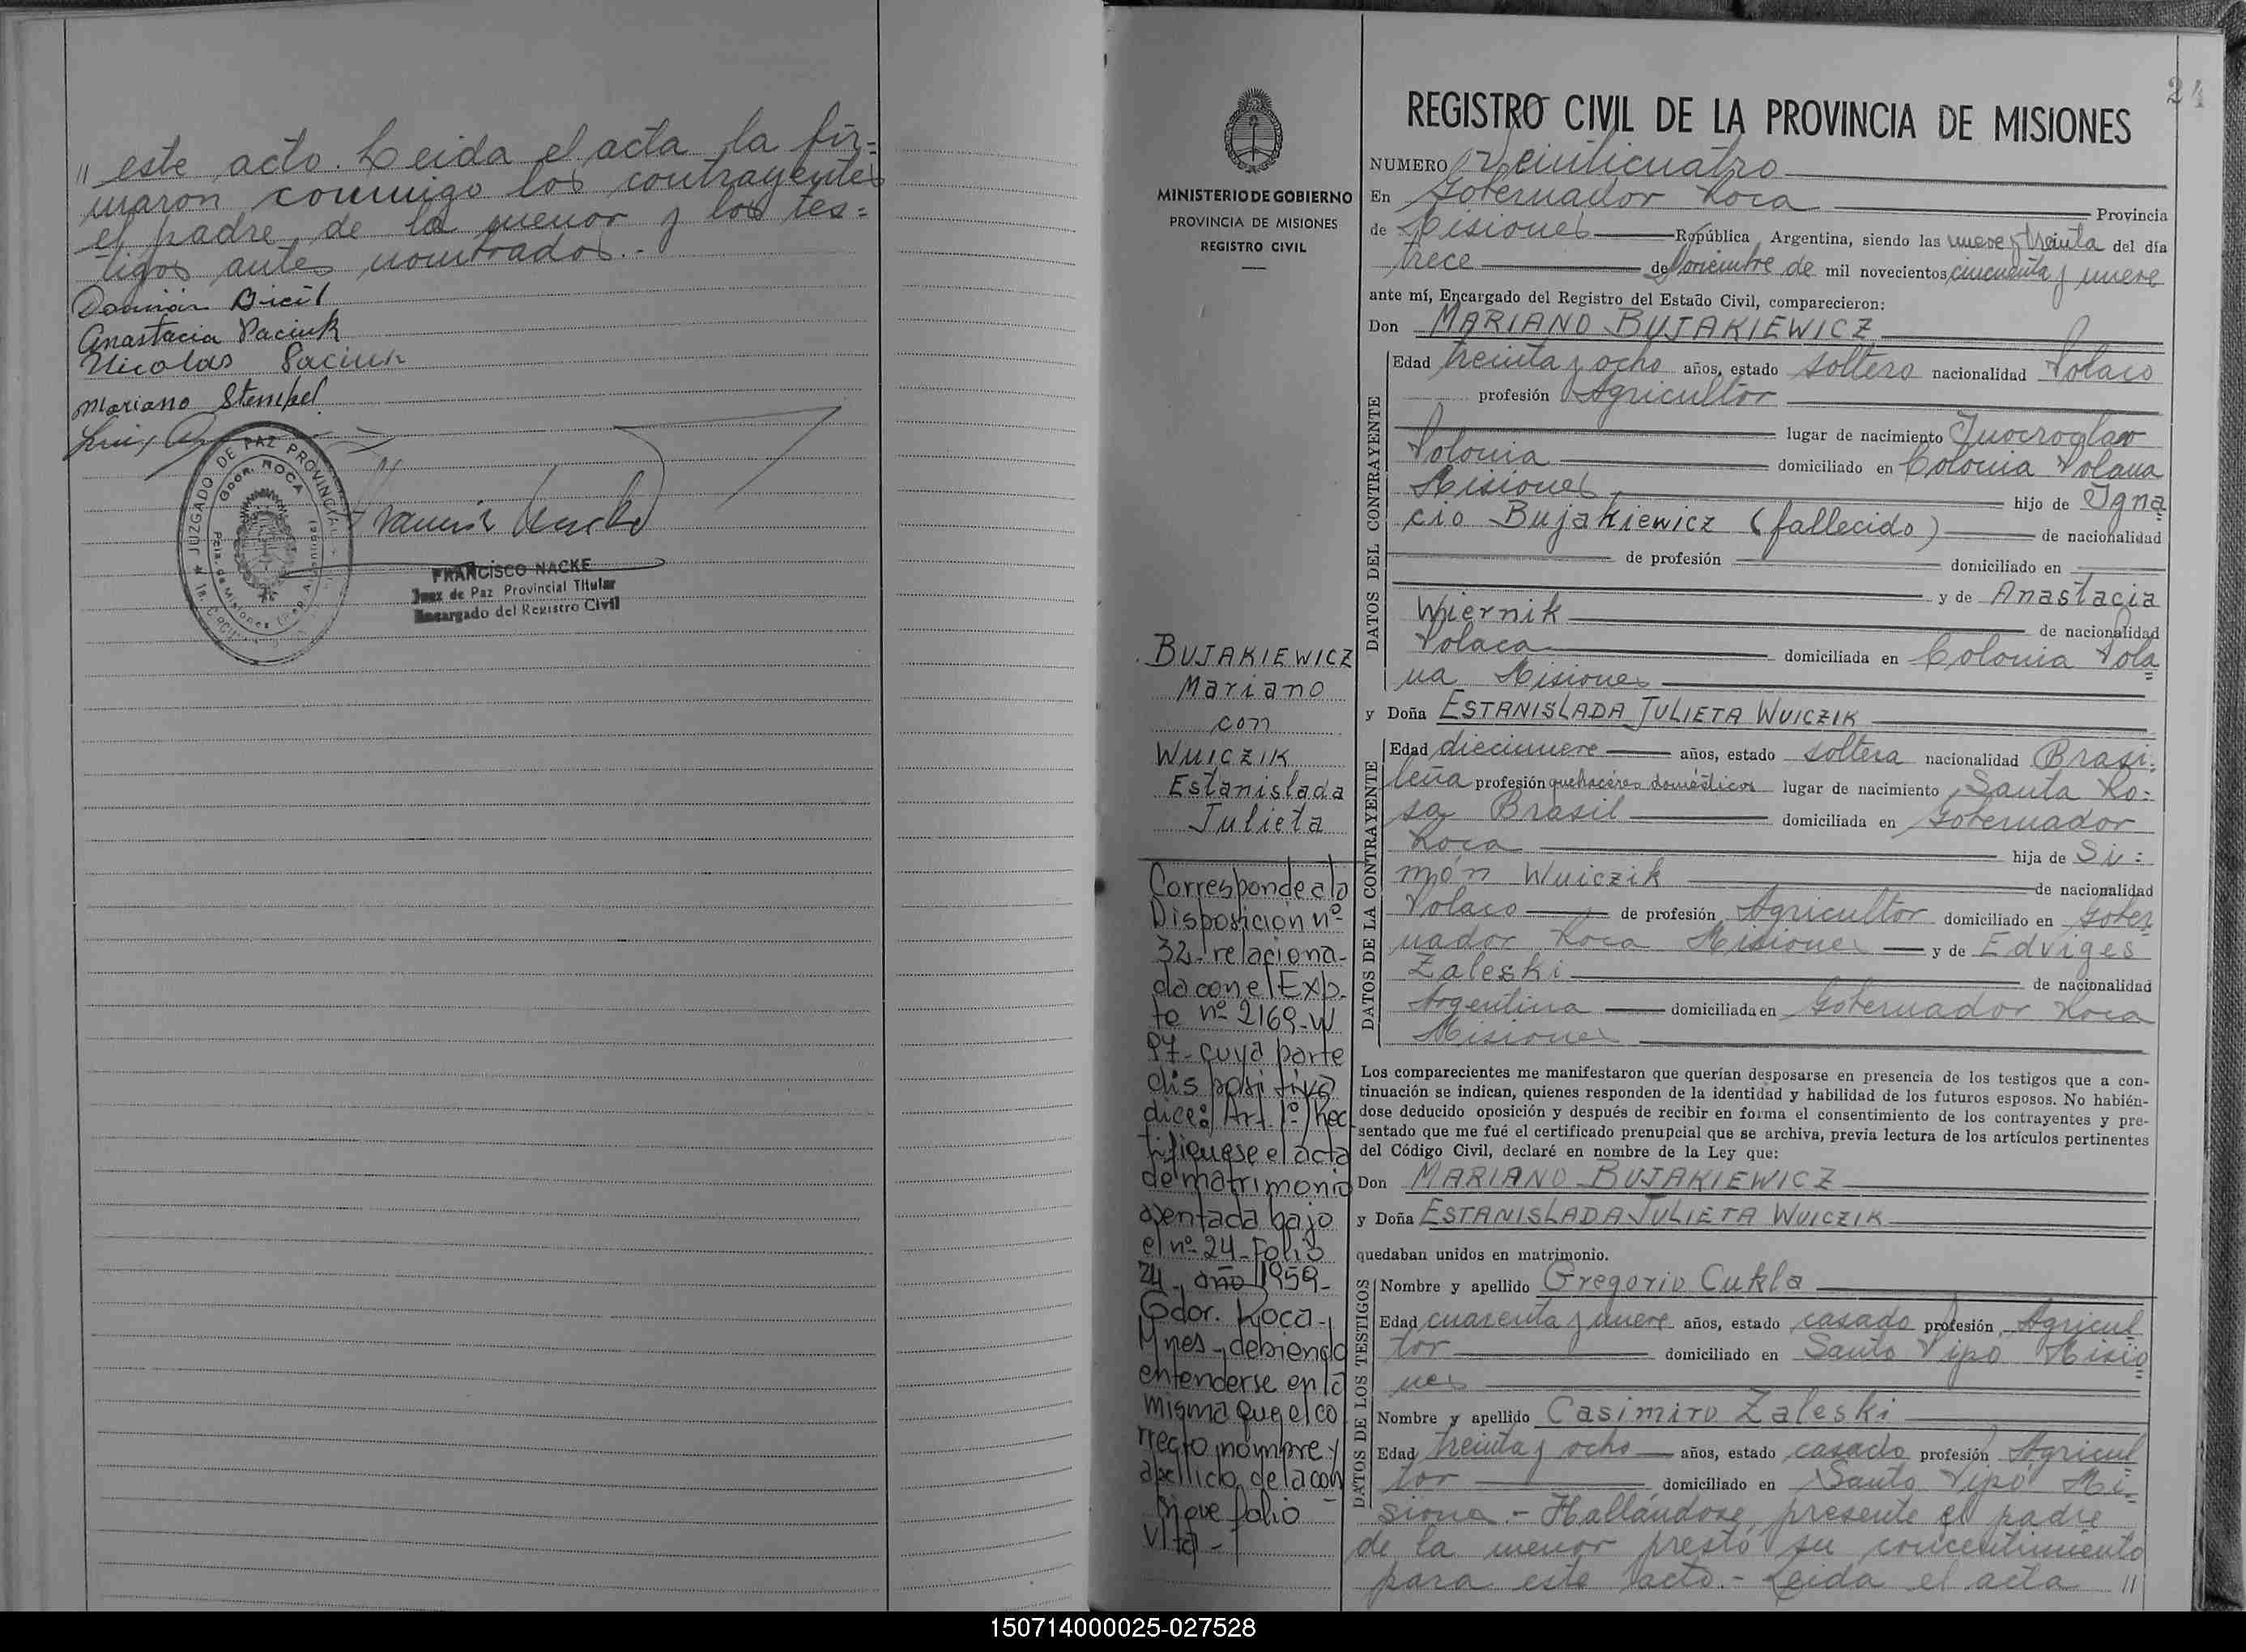 " este acto. Leida el acta la fir=
maron conmigo los contrayentes
el padre de la menor y los tes=
tigos antes nombrados.-
Anastacia Paciuk
Nicolas Paciuk
Mariano Stempel
JUZGADO DE PAZ PROVINCIAL
GDOR. ROCA
Pcia. de Misiones
FRANCISCO NACKE
Juez de Paz Provincial Titular
Encargado del Registro Civil
24
MINISTERIO DE GOBIERNO
PROVINCIA DE MISIONES
REGISTRO CIVIL
BUJAKIEWICZ
Mariano
con
WUICZIK
Estanislada
Julieta
Corresponde a la
Disposición nº
32- relaciona-
da con el Exp.
te nº 2169-W
97- cuya parte
dispositiva
dice: Art. 1º/ Rec
tifiquese el acta
de matrimonio
asentada bajo
el nº 24- Folio
24- año 1959-
Gdor. Roca-
Mnes- debiendo
entenderse en la
misma que el co
rrecto nombre y
apellido de la con
folio
Vta-
REGISTRO CIVIL DE LA PROVINCIA DE MISIONES
NUMERO Veinticuatro
En Gobernador Roca Provincia
de Misiones República Argentina, siendo las nueve y treinta del día
trece de mil novecientos cincuenta y nueve
ante mí, Encargado del Registro del Estado Civil, comparecieron:
Don MARIANO BUJAKIEWICZ
DATOS DEL CONTRAYENTE
Edad treinta y ocho años, estado soltero nacionalidad Polaco
profesión Agricultor
lugar de nacimiento
Polonia domiciliado en Colonia Polana
Misiones hijo de Igna
cio Bujakiewicz (fallecido) de nacionalidad
de profesión domiciliado en
y de Anastacia
Wiernik de nacionalidad
Polaca domiciliada en Colonia Pola
na Misiones
y Doña ESTANISLADA JULIETA WUICZIK
DATOS DE LA CONTRAYENTE
Edad diecinueve años, estado soltera nacionalidad Brasi=
leña profesión quehaceres domésticos lugar de nacimiento Santa Ro=
sa Brasil domiciliada en Gobernador
Roca hija de Si=
món Wuiczik de nacionalidad
Polaco de profesión Agricultor domiciliado en Gober
nador Roca Misiones y de Edviges
Zaleski de nacionalidad
Argentina domiciliada en Gobernador Roca
Misiones
Los comparecientes me manifestaron que querían desposarse en presencia de los testigos que a con-
tinuación se indican, quienes responden de la identidad y habilidad de los futuros esposos. No habién-
dose deducido oposición y después de recibir en forma el consentimiento de los contrayentes y pre-
sentado que me fué el certificado prenupcial que se archiva, previa lectura de los artículos pertinentes
del Código Civil, declaré en nombre de la Ley que:
Don MARIANO BUJAKIEWICZ
y Doña ESTANISLADA JULIETA WUICZIK
quedaban unidos en matrimonio.
DATOS DE LOS TESTIGOS
Nombre y apellido Gregorio Cukla
Edad cuarenta y nueve años, estado casado profesión Agricul
tor domiciliado en Santo Pipo Misio
nes
Nombre y apellido Casimiro Zaleski
Edad treinta y ocho años, estado casado profesión Agricul
tor domiciliado en Santo Pipo Mi-
siones.- Hallándose presente el padre
de la menor prestó su concentimiento
para este acto.- Leida el acta "
150714000025-027528